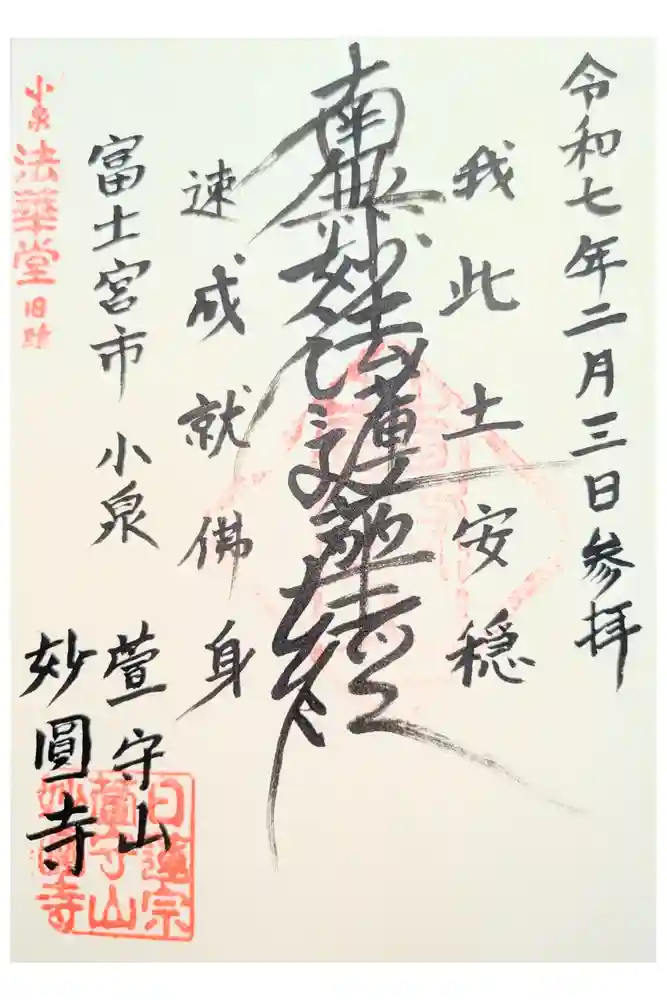 令和七年二月三日参拝
我此土安穏
南無妙法蓮華経
速成就佛身
富士宮市 小泉
萱守山
妙圓寺
小泉
法華堂
旧跡
日蓮宗
萱守山
妙圓寺